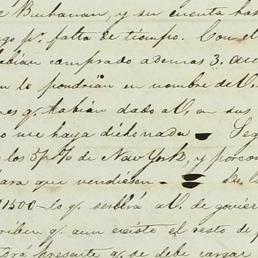 e Buchanan, y su cuenta has
go pr. falta de tiempo. Con el
abian comprado ademas 3. acc
n lo pondrian en nombre de V.
nes q. habian dado al V, a sus
o me haya dicho nada Seg
los 5 p% de New York, y por con
para que vendiesen. De la
11500 lo q. servirá a V. de govier
criben q. aun existe el resto de f
drá presente q. se debe cargar